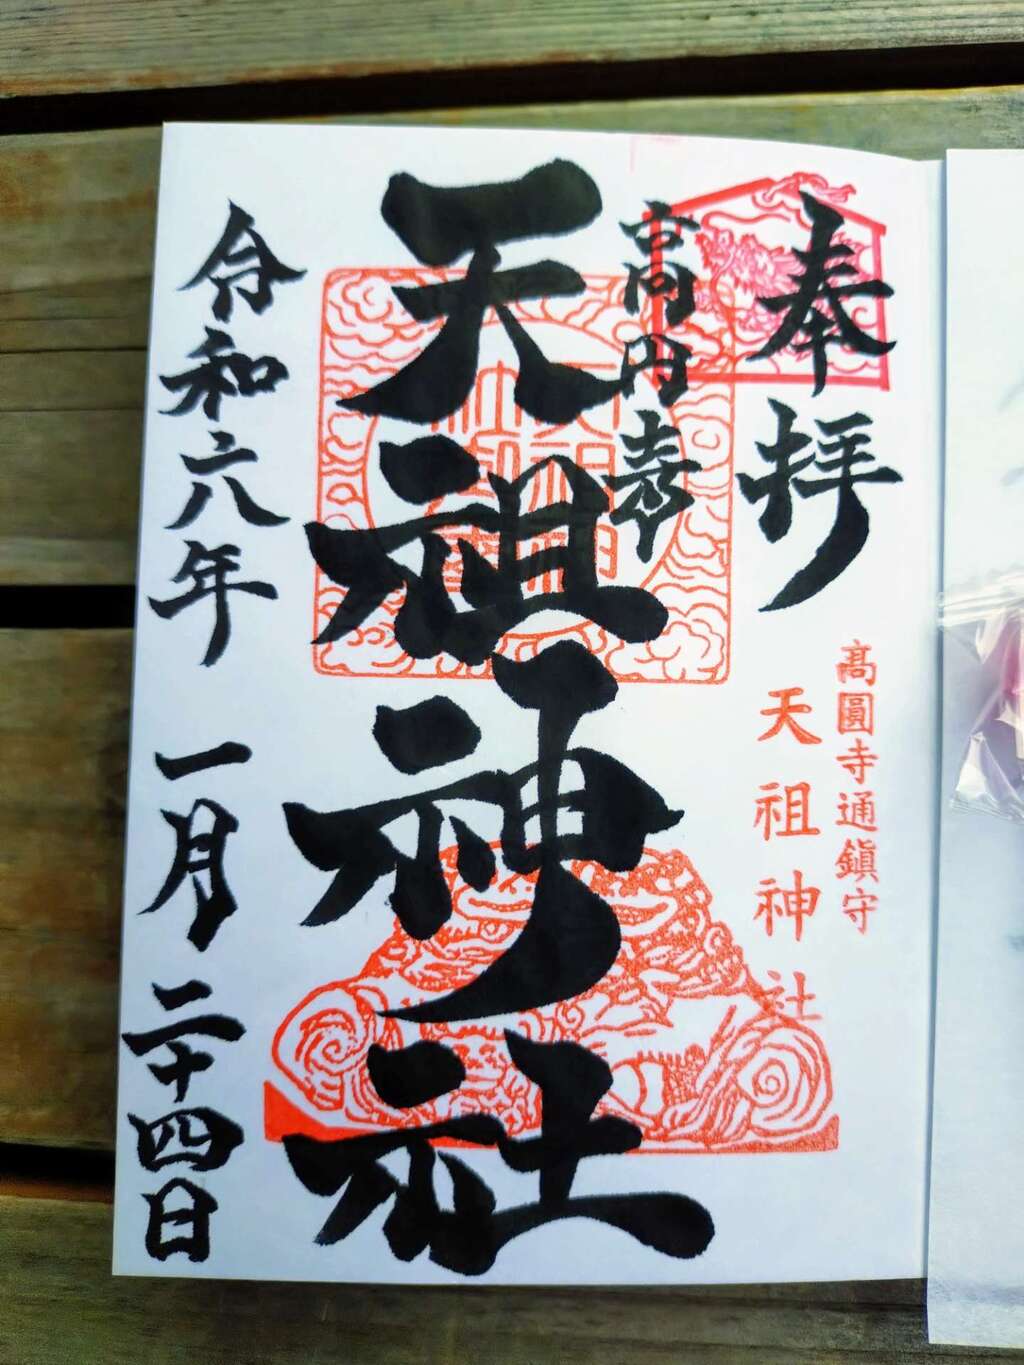 奉拝
髙圓寺通鎮守
天祖神社
高円寺
天祖神社
令和六年 一月 二十四日